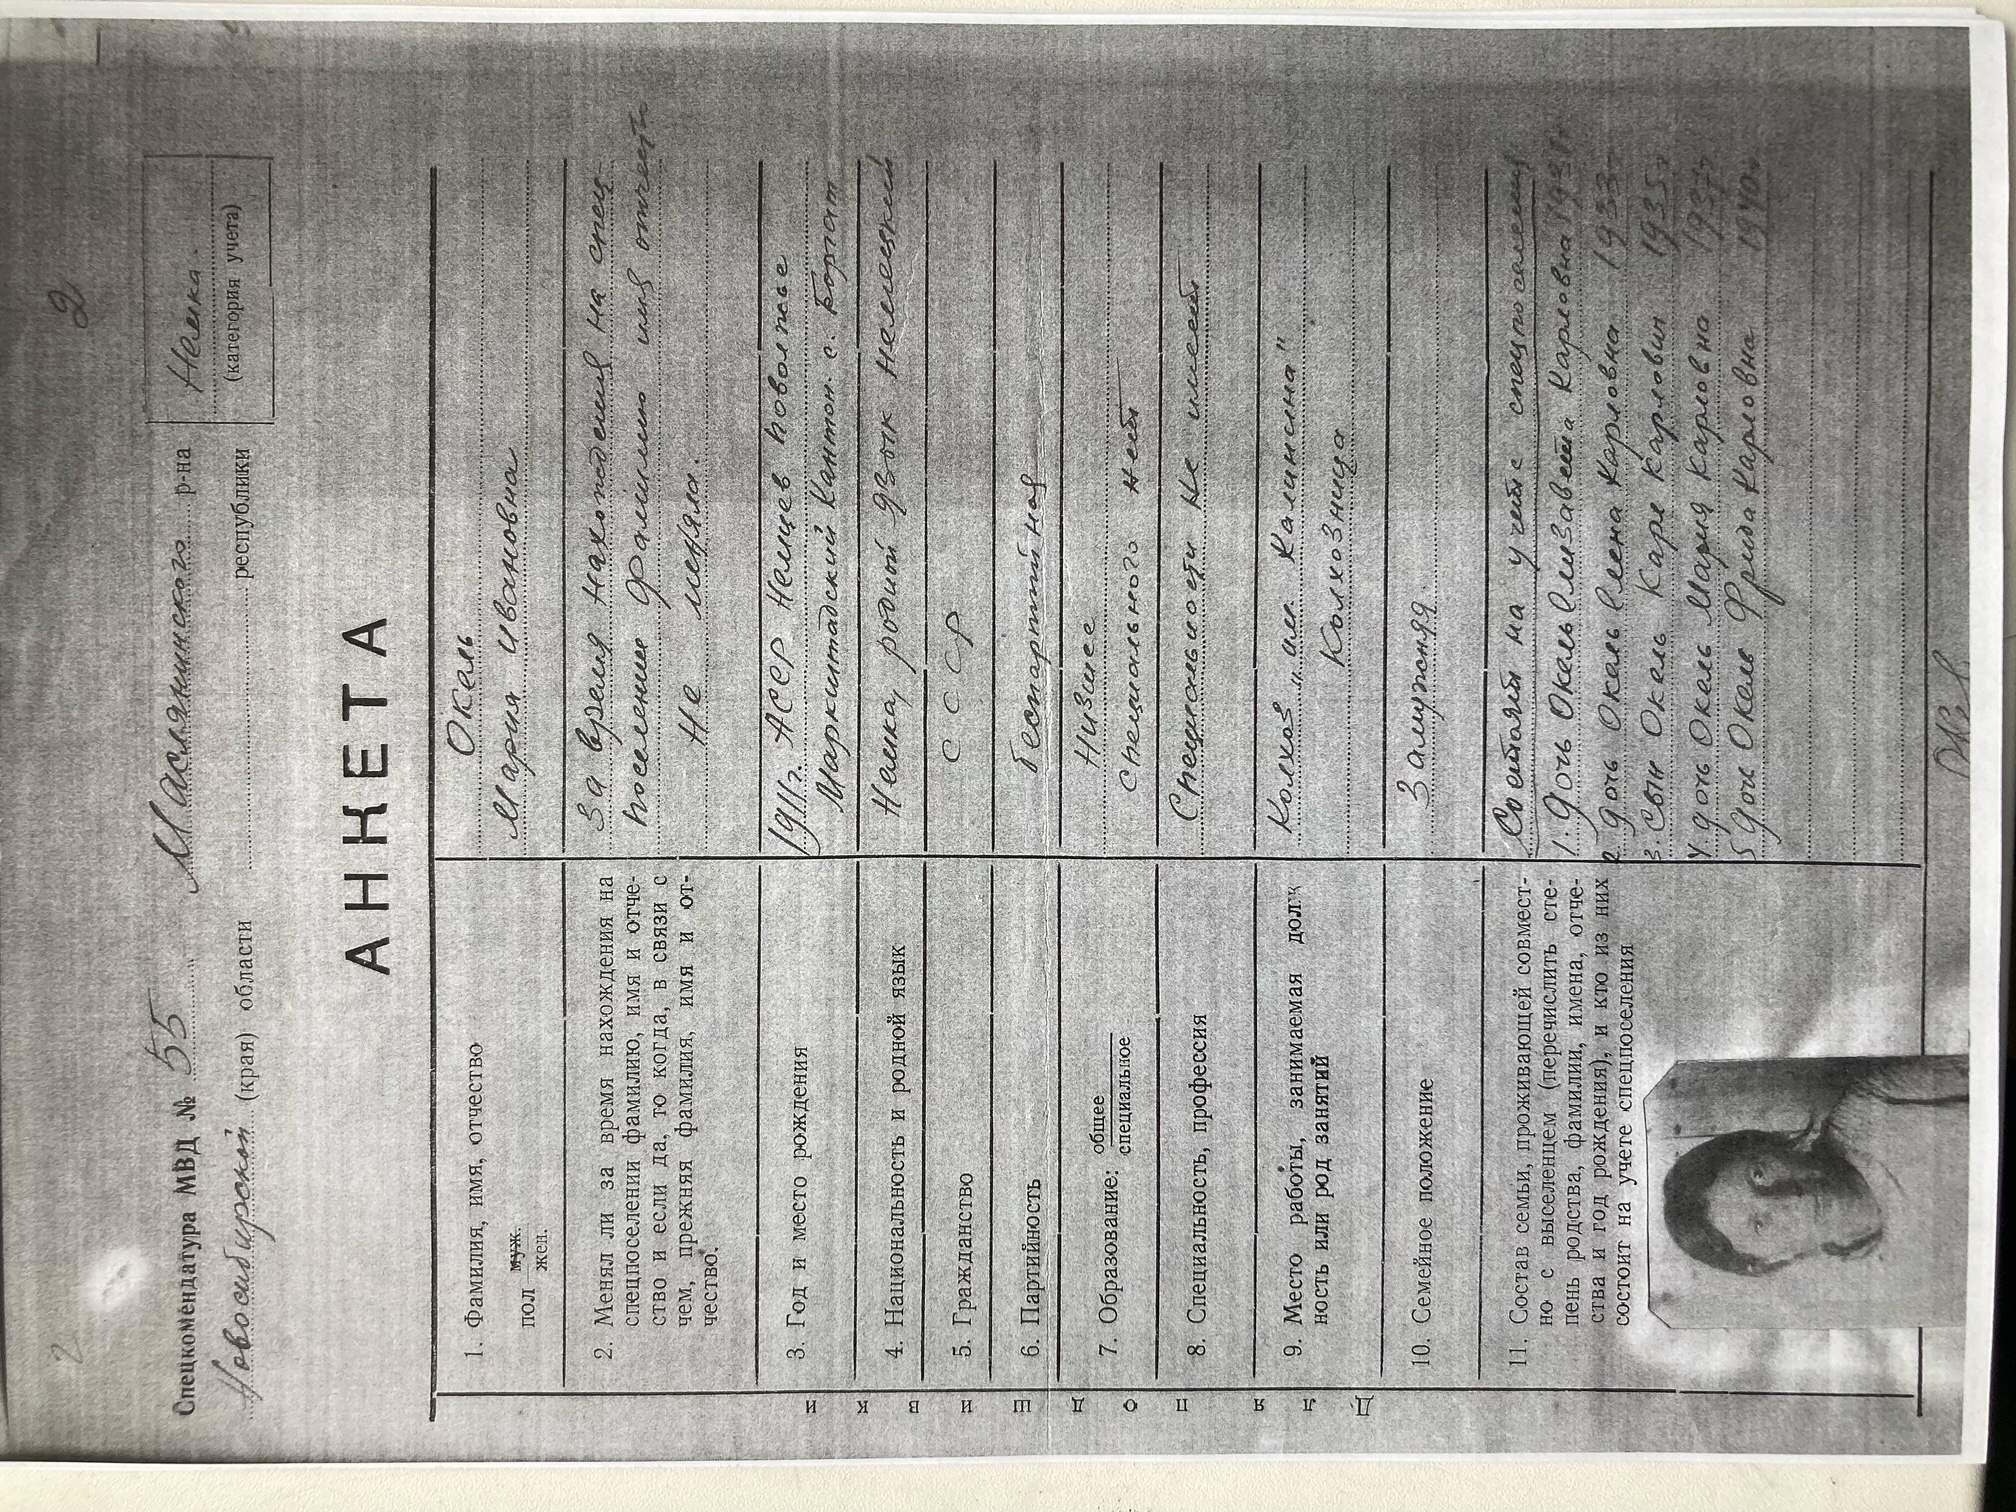 2
Спецкомендатура МВД № 55 Маслянинского р-на
Новосибирской (края) области республики
Немка.
(категория учета)
АНКЕТА
1. Фамилия, имя, отчество
пол муж.
жен.
Окель
Мария Ивановна
2. Менял ли за время нахождения на
спецпоселении фамилию, имя и отче-
ство и если да, то когда, в связи с
чем, прежняя фамилия, имя и от-
чество.
За время нахождения на спец
поселении фамилию имя отчеств
не меняла.
3. Год и место рождения
1911г. АССР Немцев поволжье
Маркштадский Кантон. с. Боргат
4. Национальность и родной язык
Немка, родный язык немецкий
5. Гражданство
СССР
6. Партийность
Беспартийная
7. Образование: общее
специальное
Низшее
специального нет
8. Специальность, профессия
Специальности не имеет
9. Место работы, занимаемая долж
ность или род занятий
Колхоз „им. Калинина"
Колхозница
10. Семейное положение
Замужняя.
11. Состав семьи, проживающей совмест-
но с выселенцем (перечислить сте-
пень родства, фамилии, имена, отче-
ства и год рождения), и кто из них
состоит на учете спецпоселения
Состоят на учете спецпоселения
1. Дочь Окель Елизавета Карловна 1931г
2. дочь Окель Елена Карловна 1933г
3. Сын Окель Карл Карлович 1935г
4 дочь Окель Мария Карловна 1937г.
5 дочь Окель Фрида Карловна 1940г.
Для подшивки